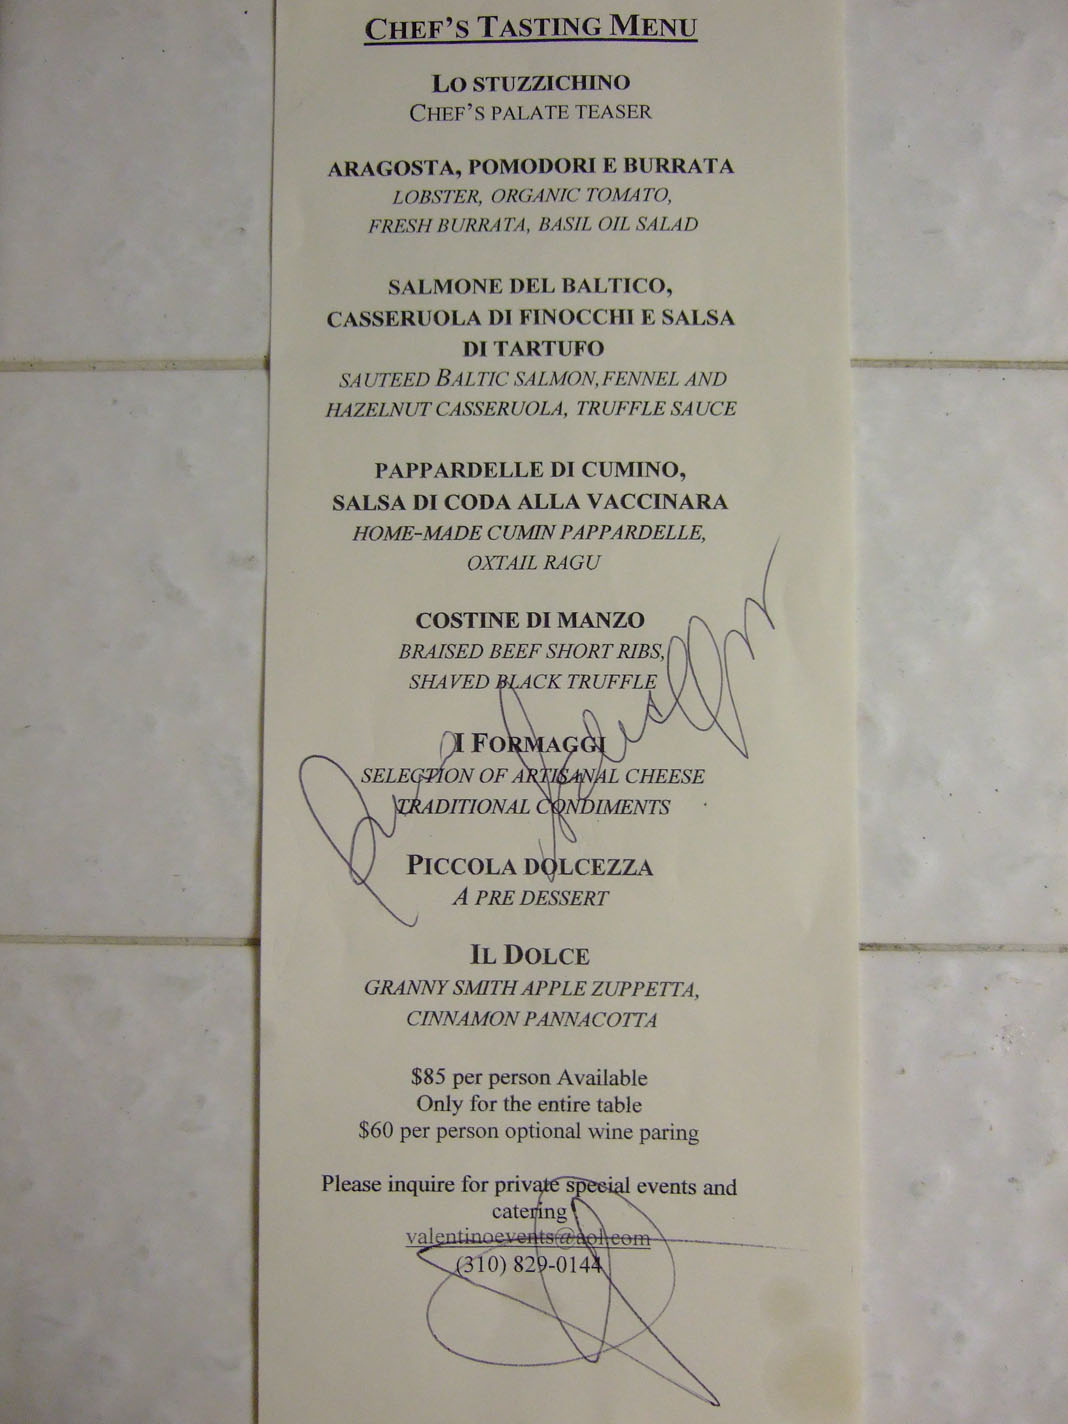 CHEF'S TASTING MENU
LO STUZZICHINO
CHEF'S PALATE TEASER
ARAGOSTA, POMODORI E BURRATA
LOBSTER, ORGANIC TOMATO,
FRESH BURRATA, BASIL OIL SALAD
SALMONE DEL BALTICO,
CASSERUOLA DI FINOCCHI E SALSA
DI TARTUFO
SAUTEED BALTIC SALMON, FENNEL AND
HAZELNUT CASSERUOLA, TRUFFLE SAUCE
PAPPARDELLE DI CUMINO,
SALSA DI CODA ALLA VACCINARA
HOME-MADE CUMIN PAPPARDELLE,
OXTAIL RAGU
COSTINE DI MANZO
BRAISED BEEF SHORT RIBS,
SHAVED BLACK TRUFFLE
I FORMAGGI
SELECTION OF ARTISANAL CHEESE
TRADITIONAL CONDIMENTS
PICCOLA DOLCEZZA
A PRE DESSERT
IL DOLCE
GRANNY SMITH APPLE ZUPPETTA,
CINNAMON PANNACOTTA
$85 per person Available
Only for the entire table
$60 per person optional wine paring
Please inquire for private special events and
catering
valentinoevents@aol.com
(310) 829-0144